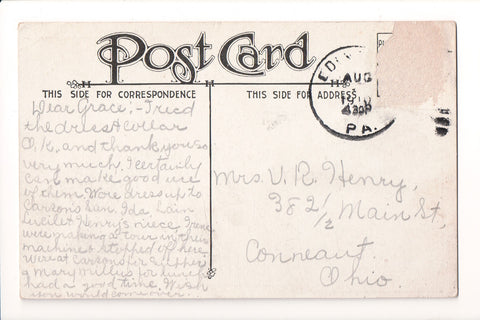 Post Card
THIS SIDE FOR CORRESPONDENCE
THIS SIDE FOR ADDRESS
EDIN
AUG
430P
PA.
Dear Grace:- Tried
the dress & collar
O.K. and thank you so
very much. I certainly
can make good use
of them. Wore dress up to
Carson's Sun. Ida, Lain
Lucile & Henry's niece Irene
were making a tour in their
machine & stopped off here.
Were at Carsons for supper
& Mary Willys for lunch
had a good time. Wish
you would come over.
Mrs. V. R. Henry,
382 1/2 Main St,
Conneaut
Ohio.